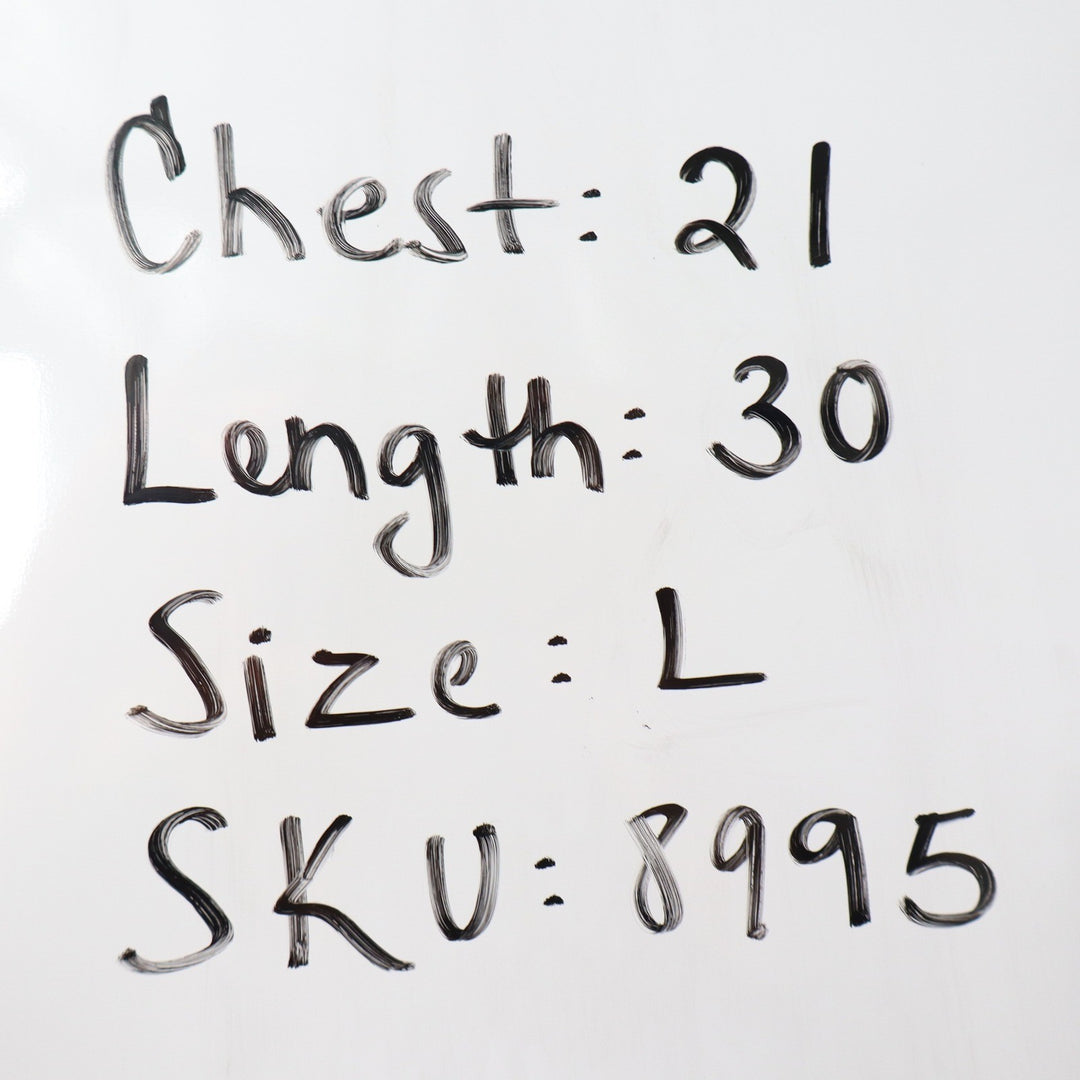 Chest: 21
Length: 30
Size: L
SKU: 8995